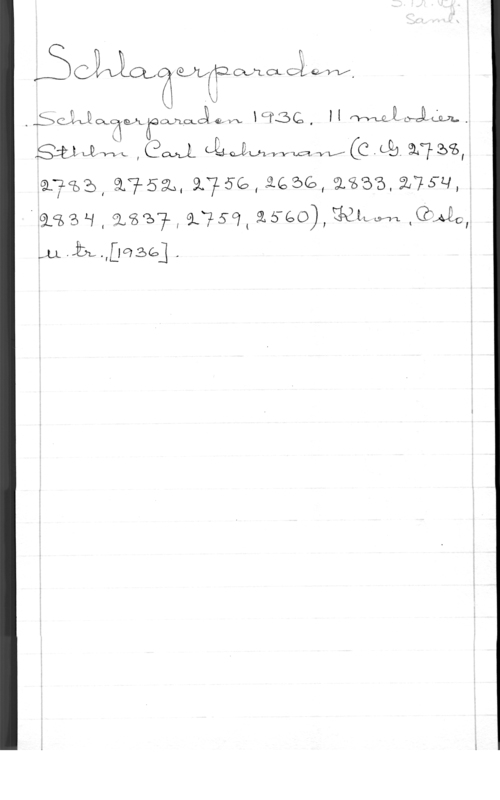 Saml.
Schlagerparaden.
Schlagerparaden 1936. 11 melodier.
Sthlm, Carl Gehrman (C.G. 2738,
2783, 2752, 2756, 2636, 2833, 2754,
2834, 2837, 2759, 2560), Khvn, Oslo,
u. tr., [1936].